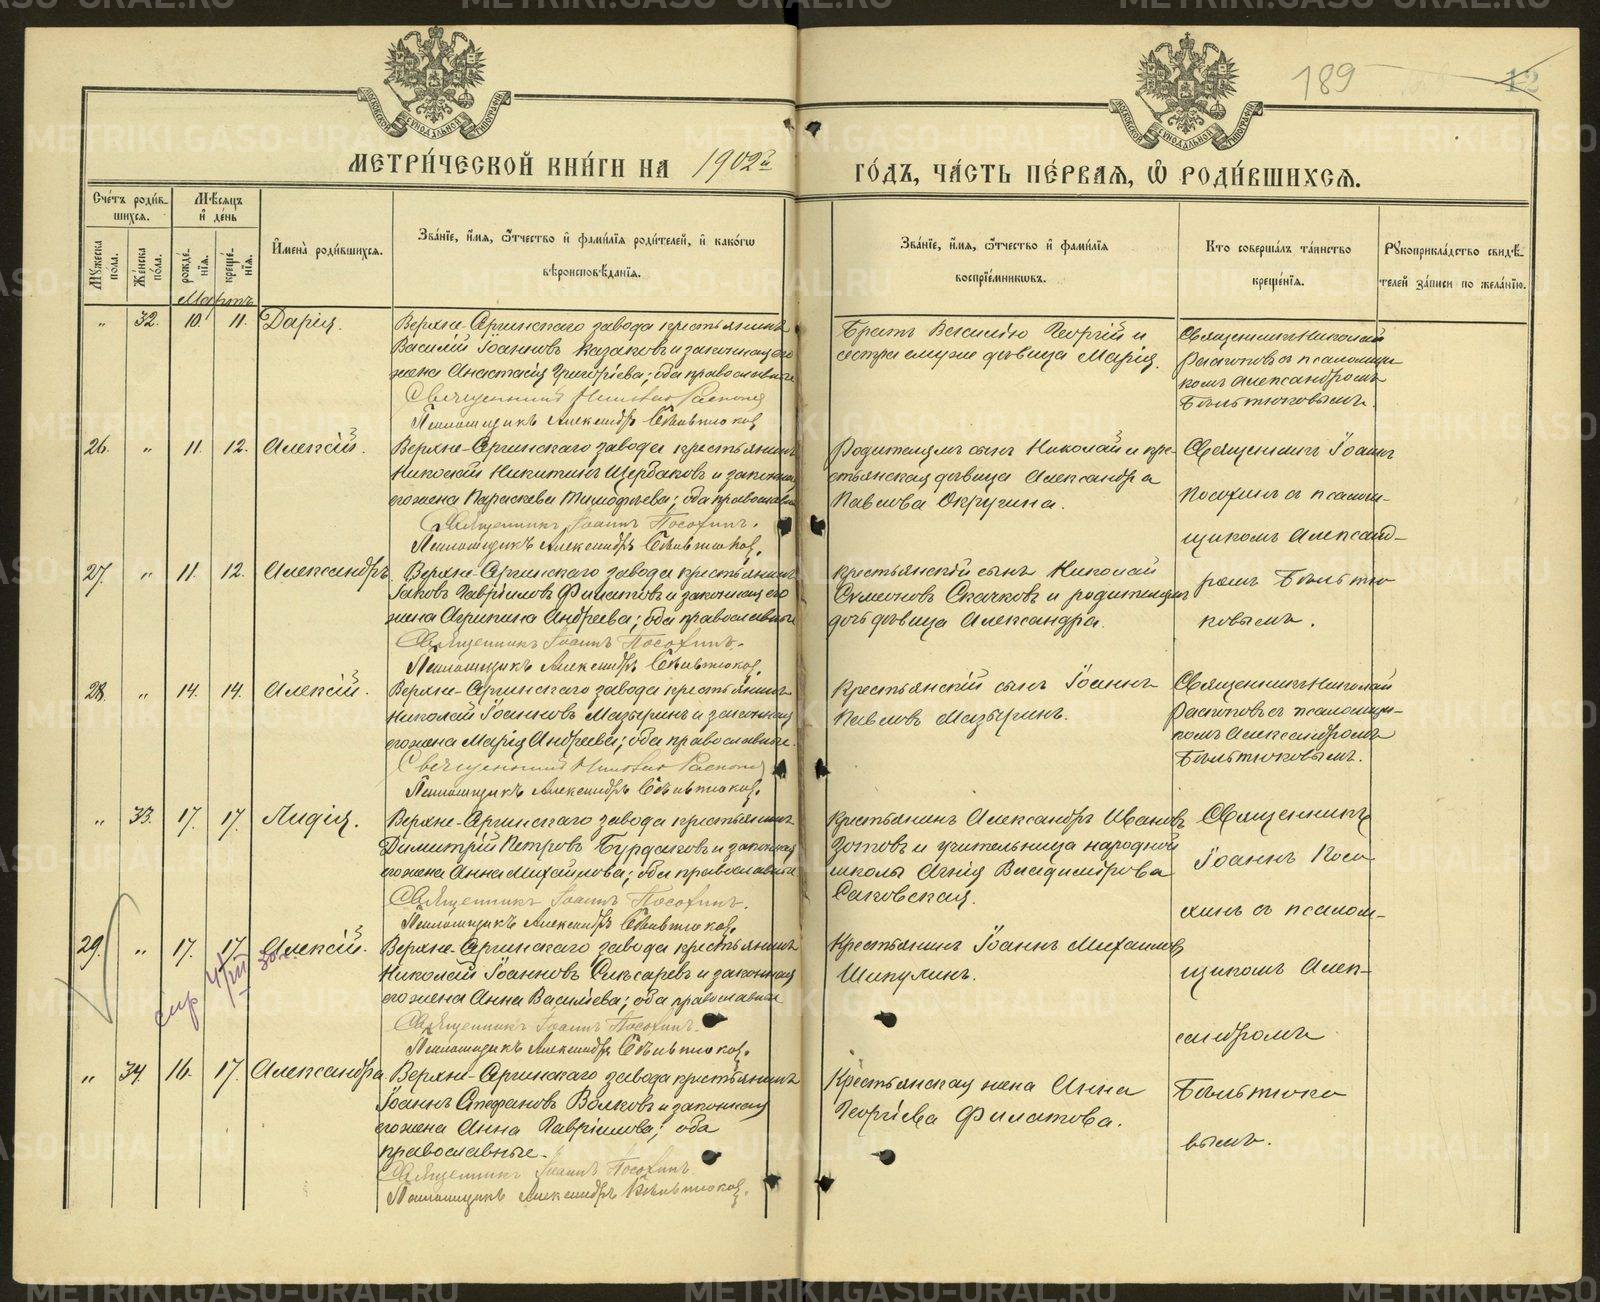 189
12
МЕТРИ́ЧЕСКОЙ КНИ́ГИ НА 1902й
ГО́ДЪ, ЧА́СТЬ ПЕ́РВАЯ, Ѿ РОДИ́ВШИХСЯ.
Сче́тъ роди́в-
шихся.
Му́жеска по́ла.
Же́нска по́ла.
Мѣ́сяцъ
и҆ де́нь
рожде́-
нїя.
креще́-
нїя.
И҆мена̀ роди́вшихся.
Зва́нїе, и҆́мя, ѻ҆́тчество и҆ фами́лїя роди́телей, и҆ како́гѡ
вѣроисповѣ́данїя.
Зва́нїе, и҆́мя, ѻ҆́тчество и҆ фами́лїя
воспрїе́мниковъ.
Кто̀ соверша́лъ та́инство
креще́нїя.
Рꙋкоприкла́дство свидѣ́-
телей за́писи по жела́нїю.
Мартъ
„ 32. 10. 11. Дарія.
Верхне-Сергинскаго завода крестьянинъ
Василій Іоанновъ Казаковъ и законная его
жена Анастасія Григоріева; оба православные
Священникъ Николай
Псаломщикъ Александръ
Братъ Василію Георгій и
сестра ему же дѣвица Марія.
Священникъ Николай
с псаломщи-
комъ Александромъ
26. „ 11. 12. Алексій.
Верхне-Сергинскаго завода крестьянинъ
Николай Никитинъ Щербаковъ и законная
его жена Параскева Тимофѣева; оба православные
Священникъ Іоаннъ Посохинъ.
Псаломщикъ Александръ
Родителямъ сынъ Николай и кре-
стьянская дѣвица Александра
Павлова Округина.
Священникъ Іоаннъ
Посохинъ с псалом-
щикомъ Александ-
ромъ
27. „ 11. 12. Александръ.
Верхне-Сергинскаго завода крестьянинъ
Іаковъ Гавриловъ Филатовъ и законная его
жена Агрипина Андреева; оба православные
Священникъ Іоаннъ Посохинъ.
Псаломщикъ Александръ
крестьянскій сынъ Николай
Симеоновъ Скачковъ и родителямъ
дочь дѣвица Александра.
28. „ 14. 14. Алексій.
Верхне-Сергинскаго завода крестьянинъ
Николай Іоанновъ Мазыринъ и законная
его жена Марія Андреева; оба православные.
Священникъ Николай
Псаломщикъ Александръ
Крестьянскій сынъ Іоаннъ
Павловъ Мазыринъ.
Священникъ Николай
с псаломщи-
комъ Александромъ
„ 33. 17. 17. Лидія.
Верхне-Сергинскаго завода крестьянинъ
Димитрій Петровъ Бурдаковъ и законная
его жена Анна Михайлова; оба православные
Священникъ Іоаннъ Посохинъ.
Псаломщикъ Александръ
Крестьянинъ Александръ Ивановъ
Зотовъ и учительница народной
школы Агнія Владимірова
Саковская.
Священникъ
Іоаннъ Посо
хинъ с псалом-
щикомъ Алек-
сандромъ
29. „ 17. 17. Алексій.
Верхне-Сергинскаго завода крестьянинъ
Николай Іоанновъ Слѣсаревъ и законная
его жена Анна Василіева; оба православные
Священникъ Іоаннъ Посохинъ.
Псаломщикъ Александръ
Крестьянинъ Іоаннъ Михаиловъ
Шипулинъ.
„ 34. 16. 17. Александра
Верхне-Сергинскаго завода крестьянинъ
Іоаннъ Стефановъ Волковъ и законная
его жена Анна Гавріилова; оба
православные.
Священникъ Іоаннъ Посохинъ
Псаломщикъ Александръ
Крестьянская жена Анна
Георгіева Филатова.